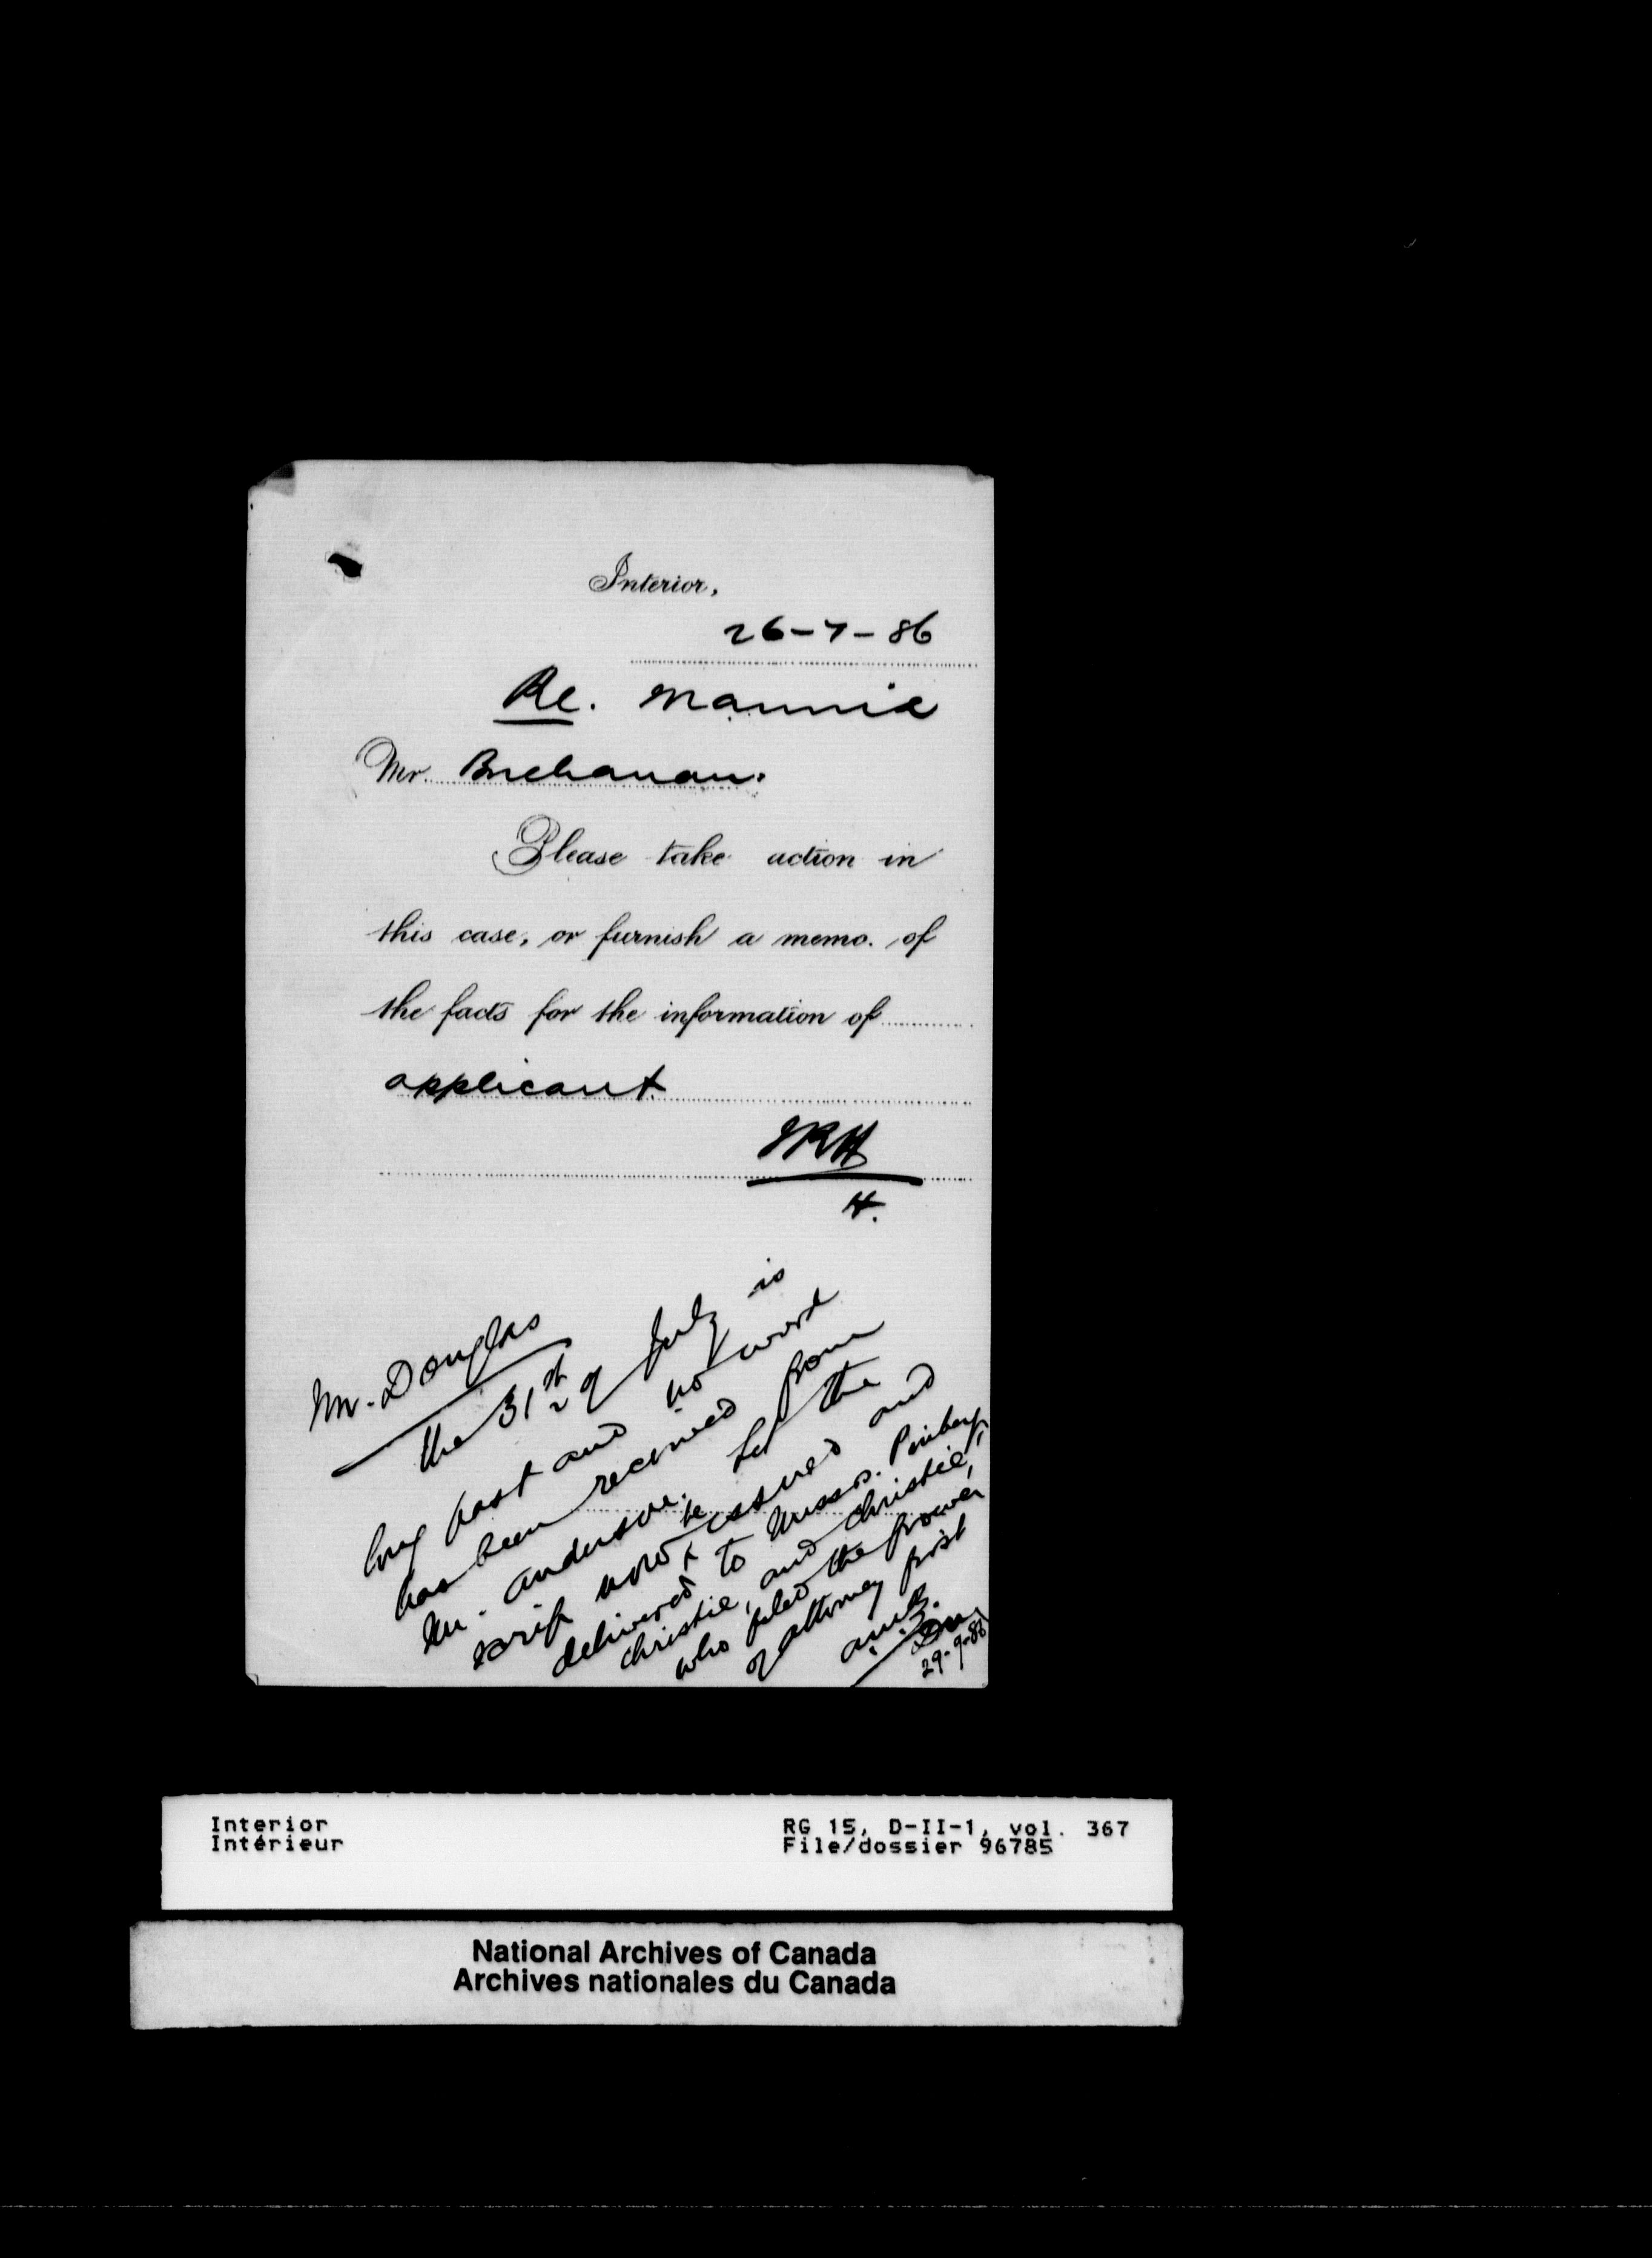 Interior,
26-7-86
Re. Mannie
Mr. Buchanan.
Please take action in
this case, or furnish a memo. of
the facts for the information of
applicant.
H.
Mr. Douglas
The 31st of July is
long past and no word
has been received from
Mr. Anderson. Let the
scrip now be issued and
delivered to Messrs.
Christie, and Christie,
who filed the power
of attorney first
29-9-86
Interior
Intérieur
RG 15, D-II-1, vol. 367
File/dossier 96785
National Archives of Canada
Archives nationales du Canada